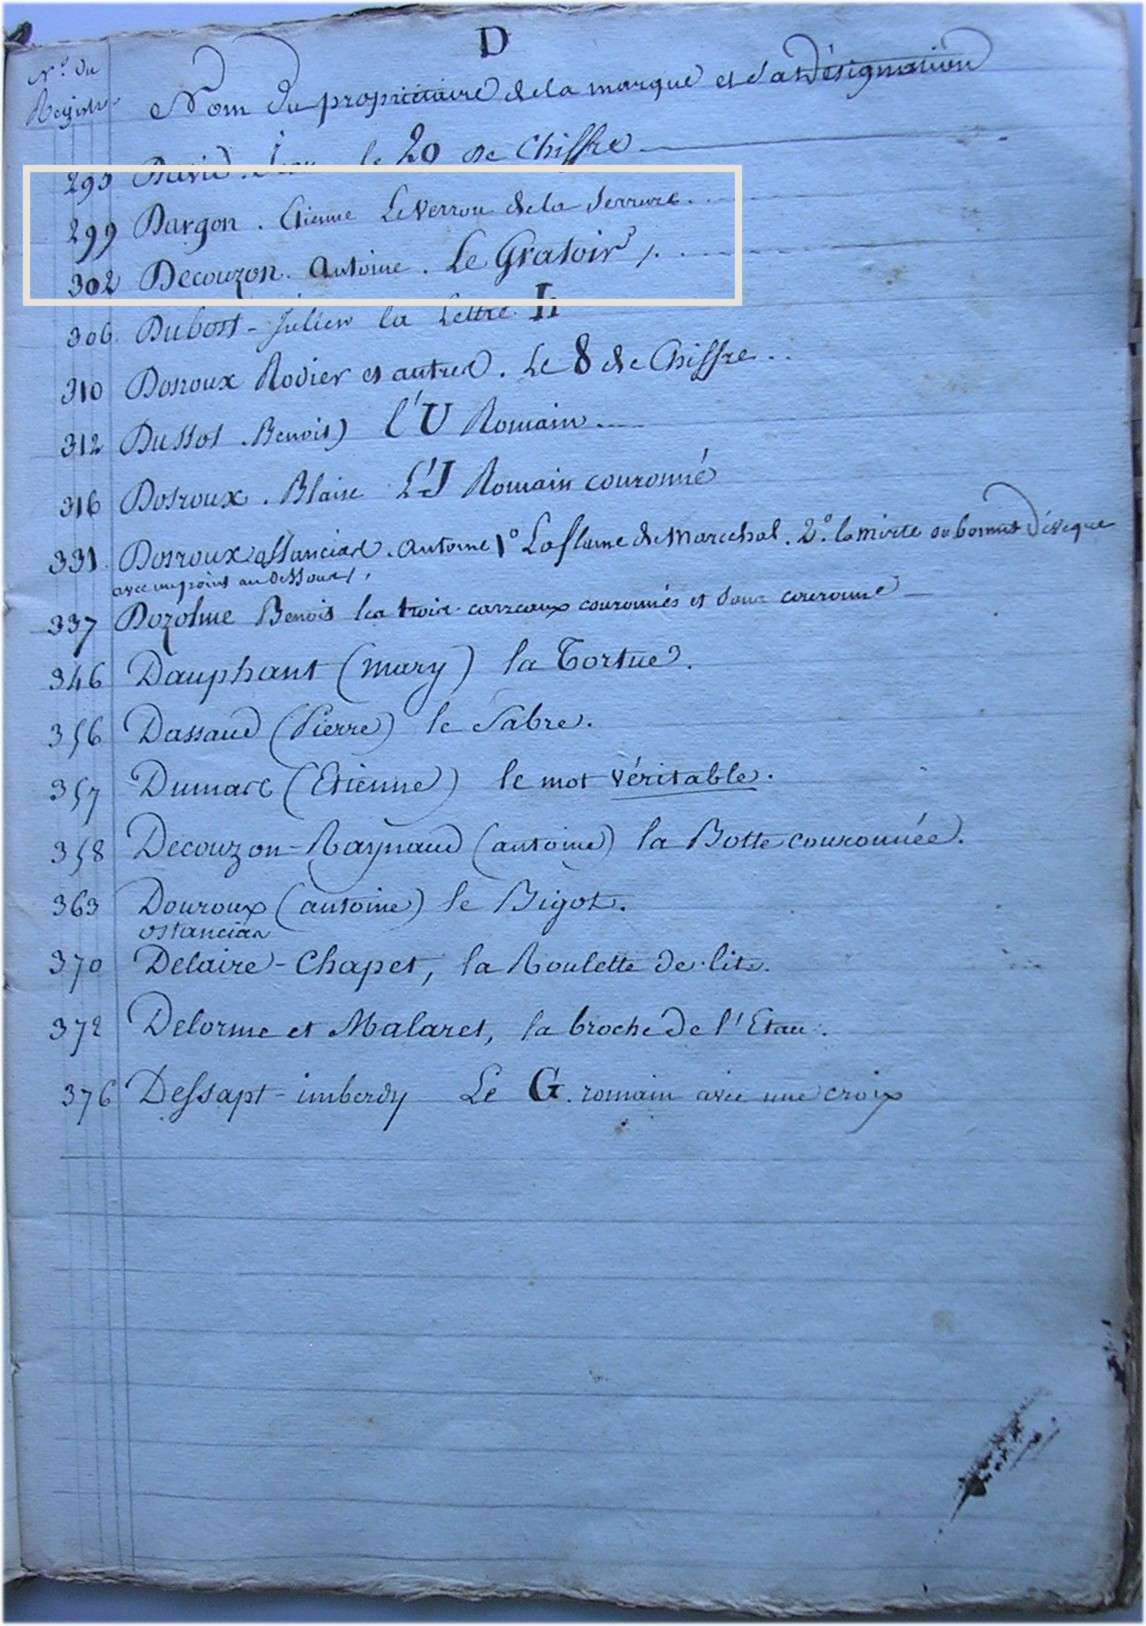 D
N.º du
Registre
Nom du propriétaire de la marque et sa désignation
295 David. le 20 de Chiffre
299 Dargon. Etienne Le Verrou de la Serrure..
302 Decouzon. Antoine. Le Gratoir
306 Dubost - Julien la Lettre h
310 Dosroux Rodier et autres. Le 8 de Chiffre...
312 Dussot. Benoit l'U Romain
316 Dosroux. Blaise L'J Romain couronné
331 Dosroux assanciat. Antoine 1º La flame de Marechal. 2º la mitre ou bonnet d'évêque
avec un point au dessous
337 Dozolme Benoit les trois carreaux couronnés et sans couronne
346 Dauphant (mary) la Tortue.
356 Dassaud (Pierre) le Sabre.
357 Dumas (Etienne) le mot Véritable.
358 Decouzon-Raynaud (antoine) la Botte couronnée.
363 Douroux (antoine) le Bigot.
ostancian
370 Delaire-Chapet, la Roulette de lit.
372 Delorme et Malaret, la broche de l'Etau.
376 Dessapt-imberdy Le G. romain avec une croix